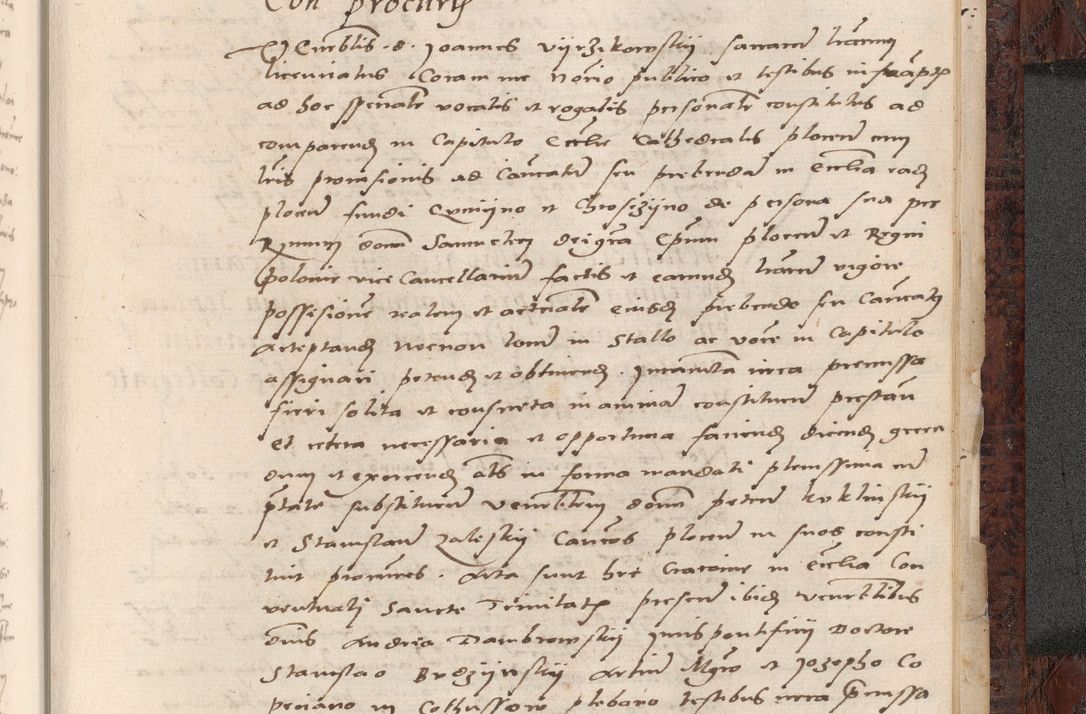 Con procuris
Venerblis d. Joannes Vijrzikowskij sacrarum lrarum
licenciatus Coram me Notario publico et testibus infrascriptis
ad hoc specialr vocatis et rogatis personalr constitutus ad
comparendum in Capitulo Eccliæ Cathedralis plocensis cum
lris provisionis ad Canonicatum seu prebendam in Ecclia eadem
plocensi fundi et de persona sua per
Rmum donum Samuelem dei gratia Epum plocensem et Regni
poloniæ vice Cancellarium factis et earundem lrarum vigore
possesionem realem et actualem eiusdem prebendæ seu Canonicatus
acceptandum Necnon locum in Stallo ac vocem in Capitulo
assignari petendum et obtinendum. Juramenta circa premissa
fieri solita et consueta in animam constituentis prestandum
et cetera necessaria et opportuna faciendum dicendum geren
dum et exercendum als in forma mandati plenissima cum
ptate substituendi Venerablem donum petrum kuklinskij
et Stanislaum Zaleskij Canonicos plocenses in suos consti
tuit procures. Acta sunt hæc Cracoviæ in Ecclia Con
ventuali Sanctæ Trinitatis presentibus ibidem venerablibus
dnis Andrea Dambrowskij Juris pontificii Doctore
Stanislao Brzezijnskij Artium Mgro et Jozepho Co
in plebano testibus circa premissa